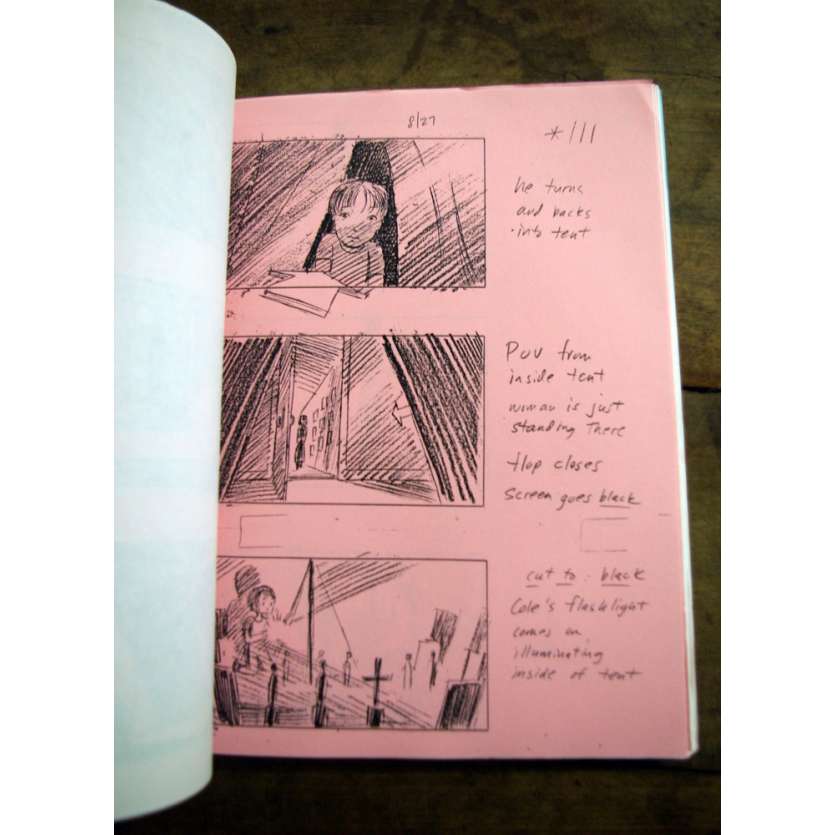 8/27
*111
he turns
and backs
into tent
POV from
inside tent
woman is just
standing there
flap closes
Screen goes black
cut to: black
Cole's flashlight
comes on
illuminating
inside of tent